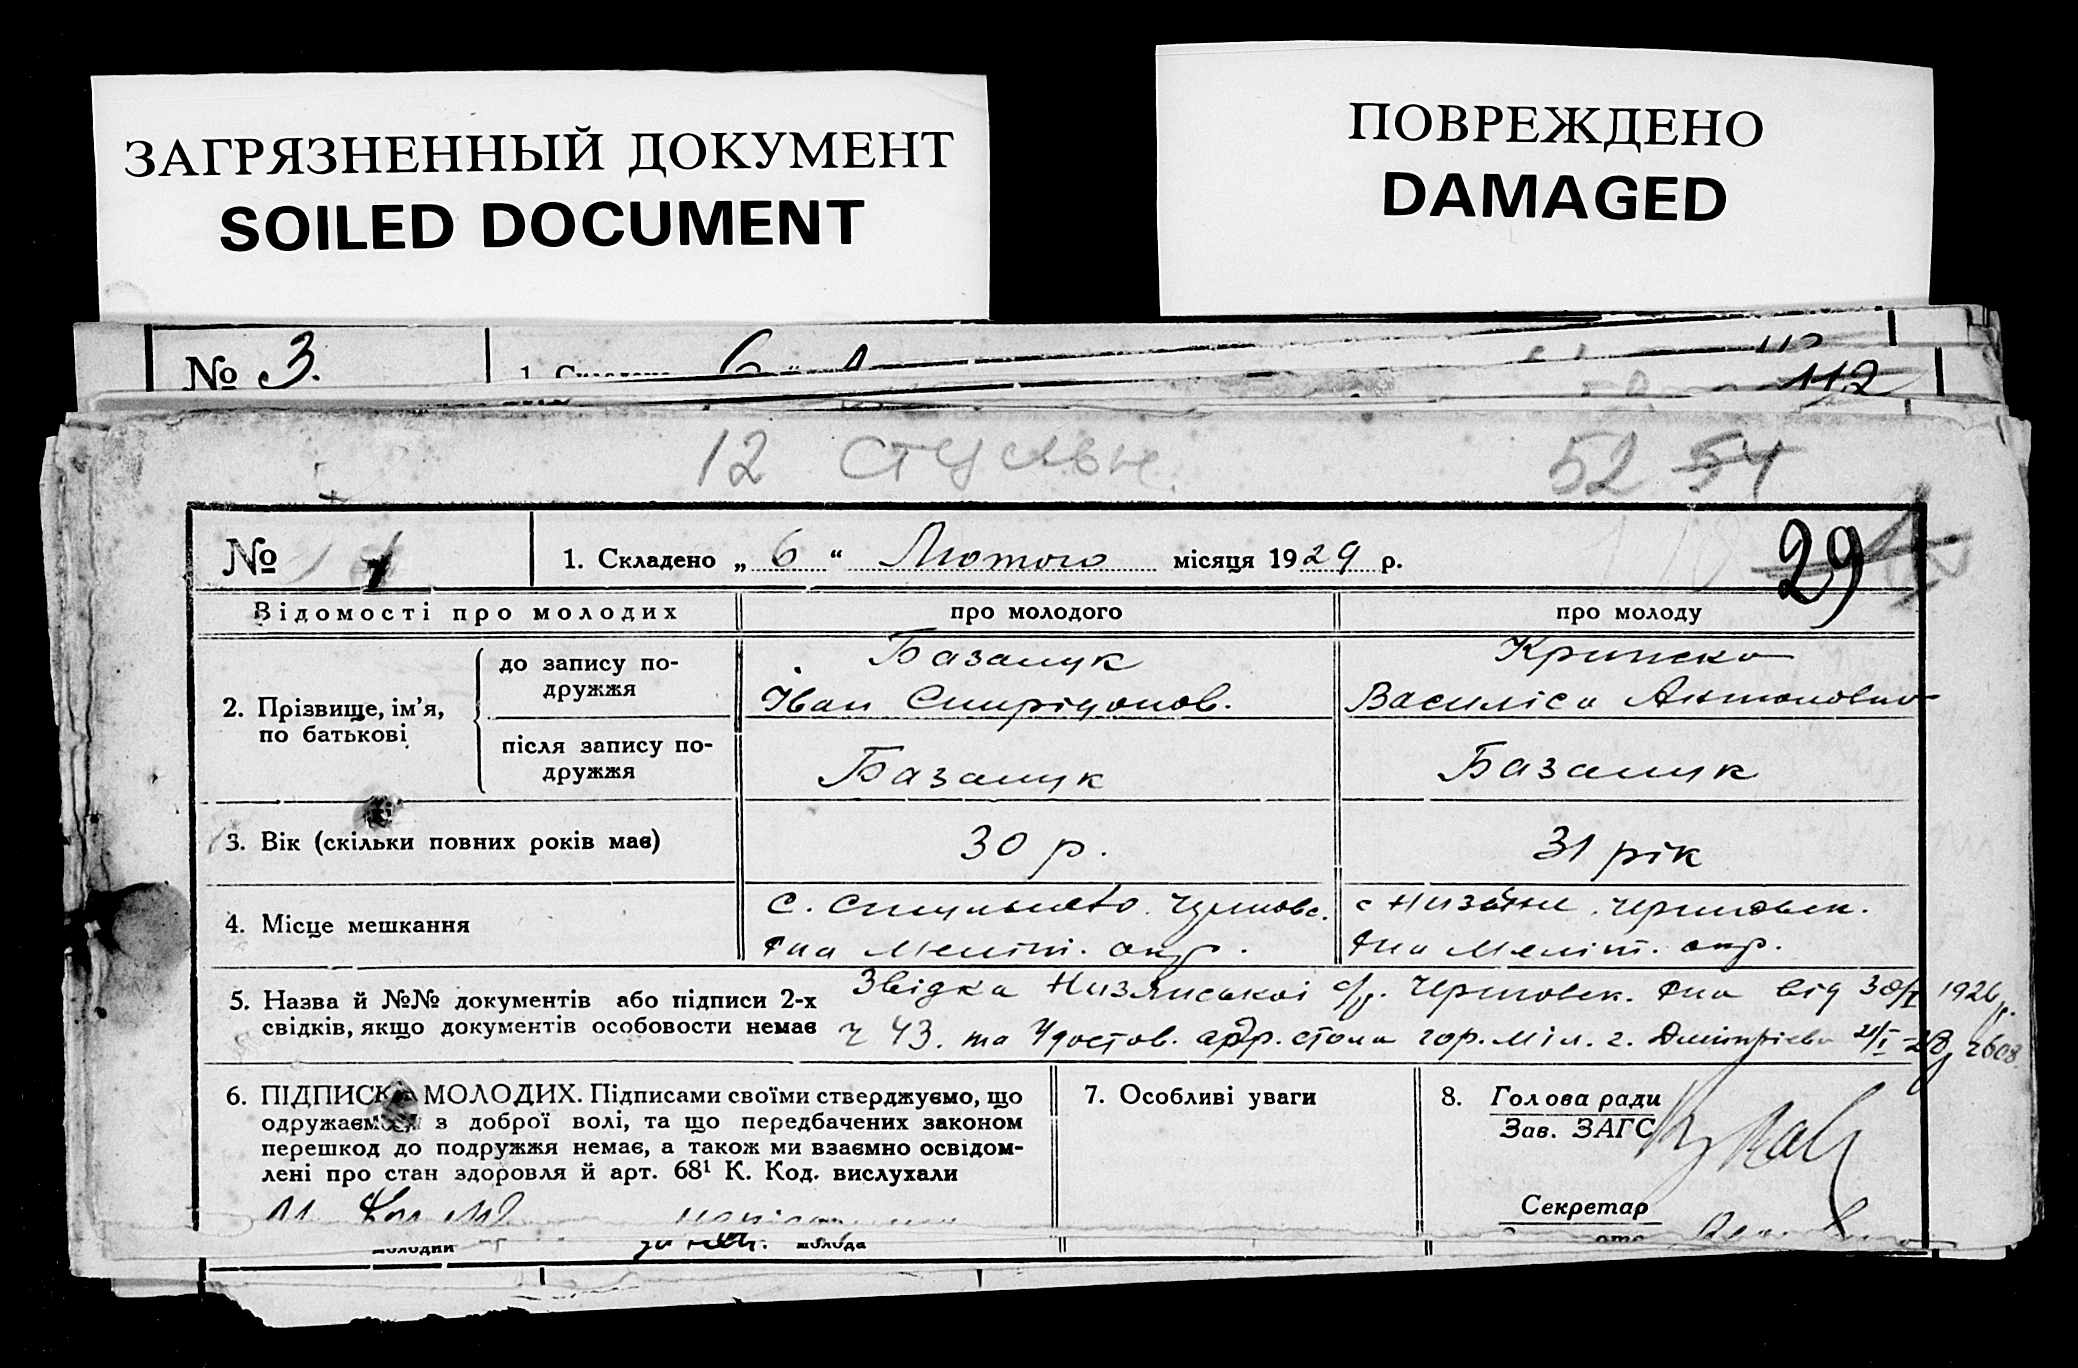 ЗАГРЯЗНЕННЫЙ ДОКУМЕНТ
SOILED DOCUMENT
ПОВРЕЖДЕНО
DAMAGED
№ 3.
1. Складено „ 6 “
112
12
52 54
№ 1
1. Складено „ 6 “ Лютого місяця 1929 р.
29
Відомості про молодих
про молодого
про молоду
2. Прізвище, ім’я,
по батькові
до запису по-
дружжя
Базалук
Іван Спирідонов.
Василіса Антоновна
після запису по-
дружжя
Базалук
Базалук
3. Вік (скільки повних років має)
30 р.
31 рік
4. Місце мешкання
с.
р-на Меліт. окр.
с
р-на Меліт. окр.
5. Назва й №№ документів або підписи 2-х
свідків, якщо документів особовости немає
Звідка Низянської с/р. р-на від
ч 43. та Удостов. адр. стола гор.
6. ПІДПИСКА МОЛОДИХ. Підписами своїми стверджуємо, що
одружаємось з доброї волі, та що передбачених законом
перешкод до подружжя немає, а також ми взаємно освідом-
лені про стан здоровля й арт. 68¹ К. Код. вислухали
молодий
молода
7. Особливі уваги
8. Голова ради
Зав. ЗАГС
Секретар